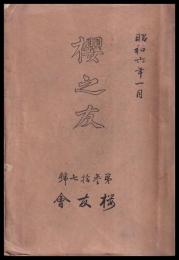 昭和六年一月
櫻之友
第叁拾七號
桜友會